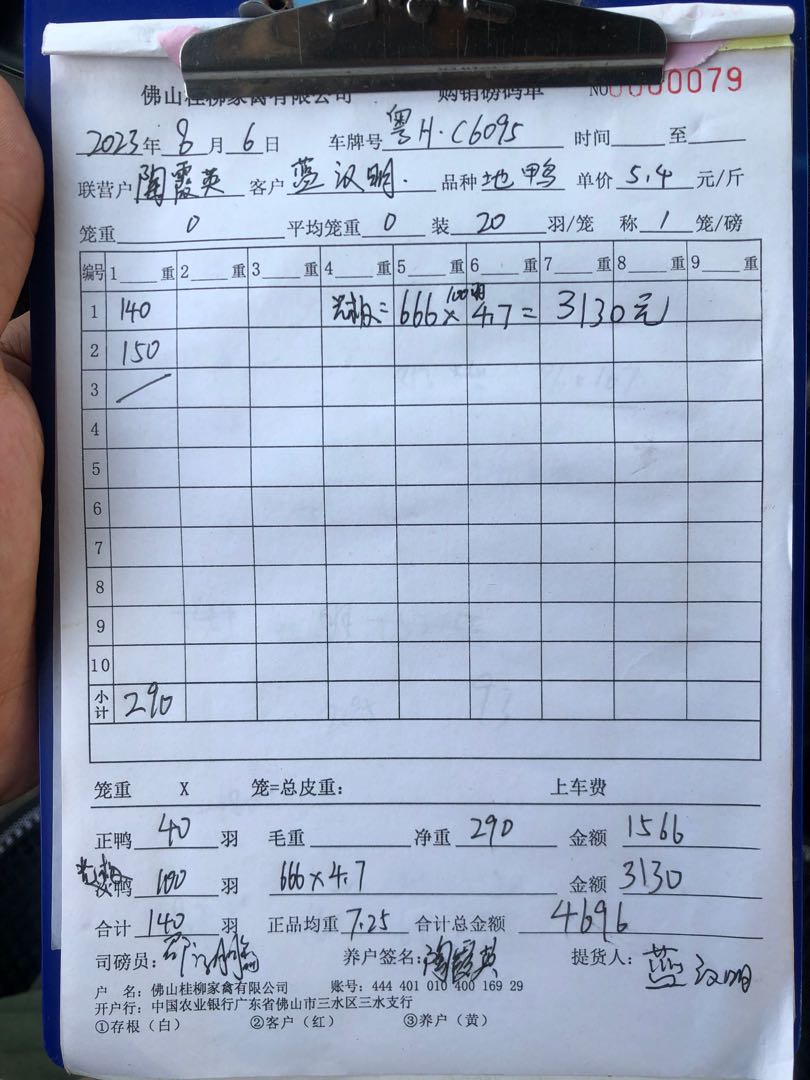 佛山桂柳家禽有限公司 购销磅码单 NO 0000079
2023年 8月 6日 车牌号 粤H·C6095 时间 至
联营户 陶霞英 客户 蓝汉明. 品种 地鸭 单价 5.4 元/斤
笼重 0 平均笼重 0 装 20 羽/笼 称 1 笼/磅
编号 1 重 2 重 3 重 4 重 5 重 6 重 7 重 8 重 9 重
1 140 光板=666×4.7=3130元
100羽
2 150
3 /
4
5
6
7
8
9
10
小计 290
笼重 X 笼=总皮重: 上车费
正鸭 40 羽 毛重 净重 290 金额 1566
光板
次鸭 100 羽 666×4.7 金额 3130
合计 140 羽 正品均重 7.25 合计总金额 4696
司磅员: 养户签名: 陶霞英 提货人: 蓝汉明
户 名: 佛山桂柳家禽有限公司 账号: 444 401 010 400 169 29
开户行: 中国农业银行广东省佛山市三水区三水支行
①存根(白) ②客户(红) ③养户(黄)